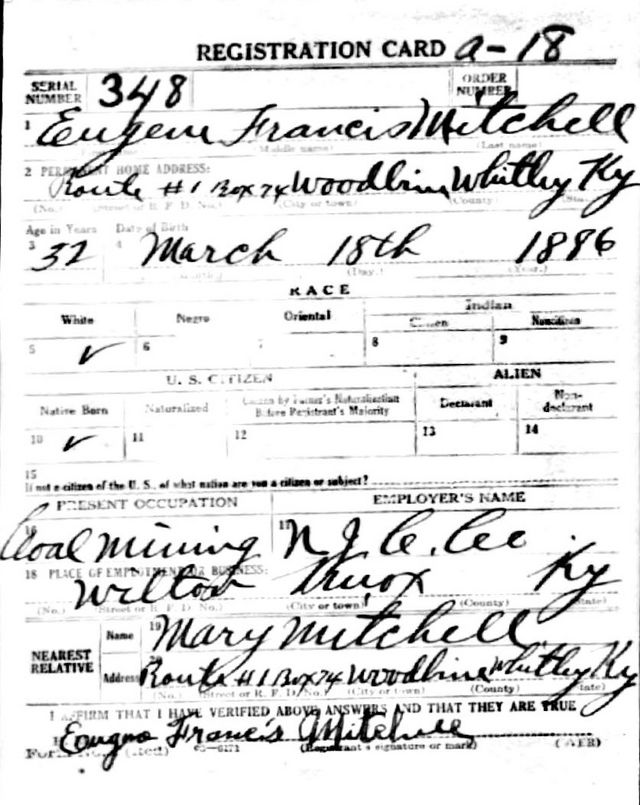 REGISTRATION CARD A-18
SERIAL NUMBER 348 ORDER NUMBER
1 Eugene Francis Mitchell
(Middle name) (Last name)
2 PERMANENT HOME ADDRESS:
Route #1 Box 74 Woodbine Whitley Ky
(No.) (Street or R. F. D. No.) (City or town) (County) (State)
Age in Years Date of Birth
3 32 4 March 18th 1886
(Month) (Day.) (Year.)
RACE
White Negro Oriental Indian
Citizen Noncitizen
5 ✓ 6 7 8 9
U. S. CITIZEN ALIEN
Native Born Naturalized Citizen by Father's Naturalization Before Registrant's Majority Declarant Non-declarant
10 ✓ 11 12 13 14
15
If not a citizen of the U. S., of what nation are you a citizen or subject?
PRESENT OCCUPATION EMPLOYER'S NAME
16 Coal Mining 17 N. J. C.
18 PLACE OF EMPLOYMENT OR BUSINESS:
Wilton Knox Ky
(No.) (Street or R. F. D. No.) (City or town) (County) (State)
NEAREST RELATIVE Name 19 Mary Mitchell
Address Route #1 Box 74 Woodbine Whitley Ky
(No.) (Street or R. F. D. No.) (City or town) (County) (State)
I AFFIRM THAT I HAVE VERIFIED ABOVE ANSWERS AND THAT THEY ARE TRUE
Eugno Francis Mitchell
Form No. 1 (Red) 03-6171 (Registrant's signature or mark) (OVER)